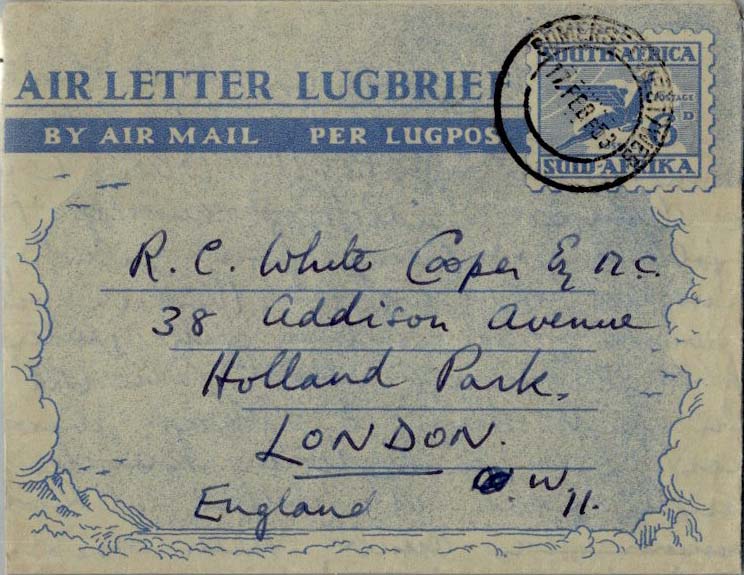 AIR LETTER LUGBRIEF
BY AIR MAIL PER LUGPOS
SOUTH AFRICA
POSTAGE
6D
SUID-AFRIKA
SOMERSET WEST
17 FEB
R. C. White Cooper Esq M.C.
38 Addison Avenue
Holland Park.
LONDON.
W. 11.
England